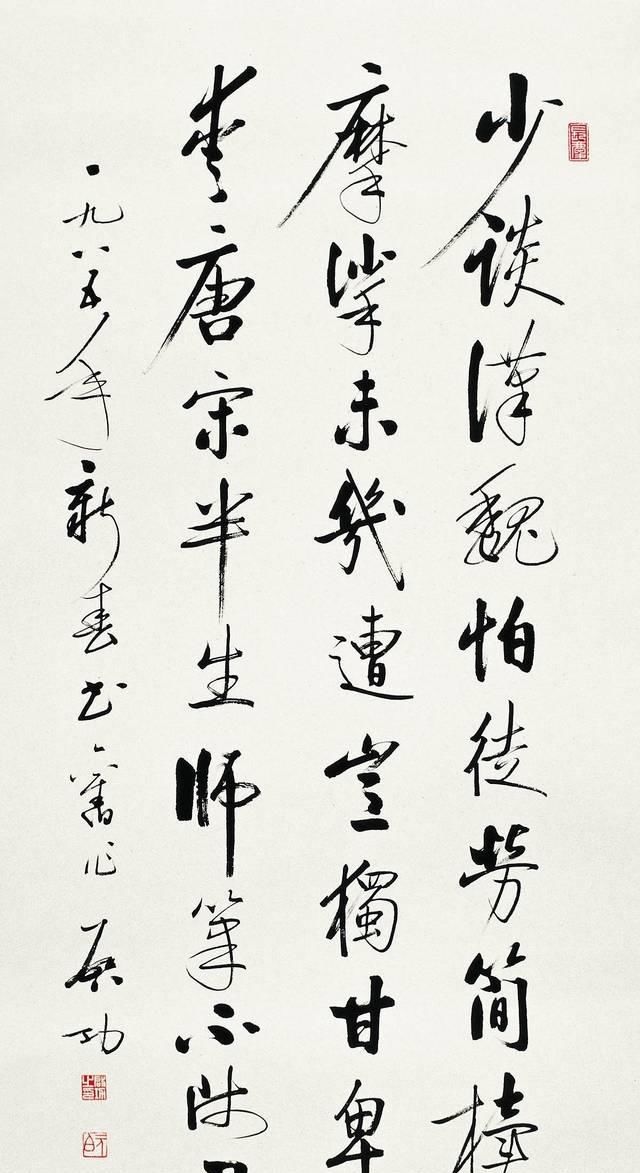 少談漢魏怕徒勞簡牘
摩挲未幾遭豈獨甘卑
愛唐宋半生師筆不師
一九八五年新春書舊作 啟功
元白